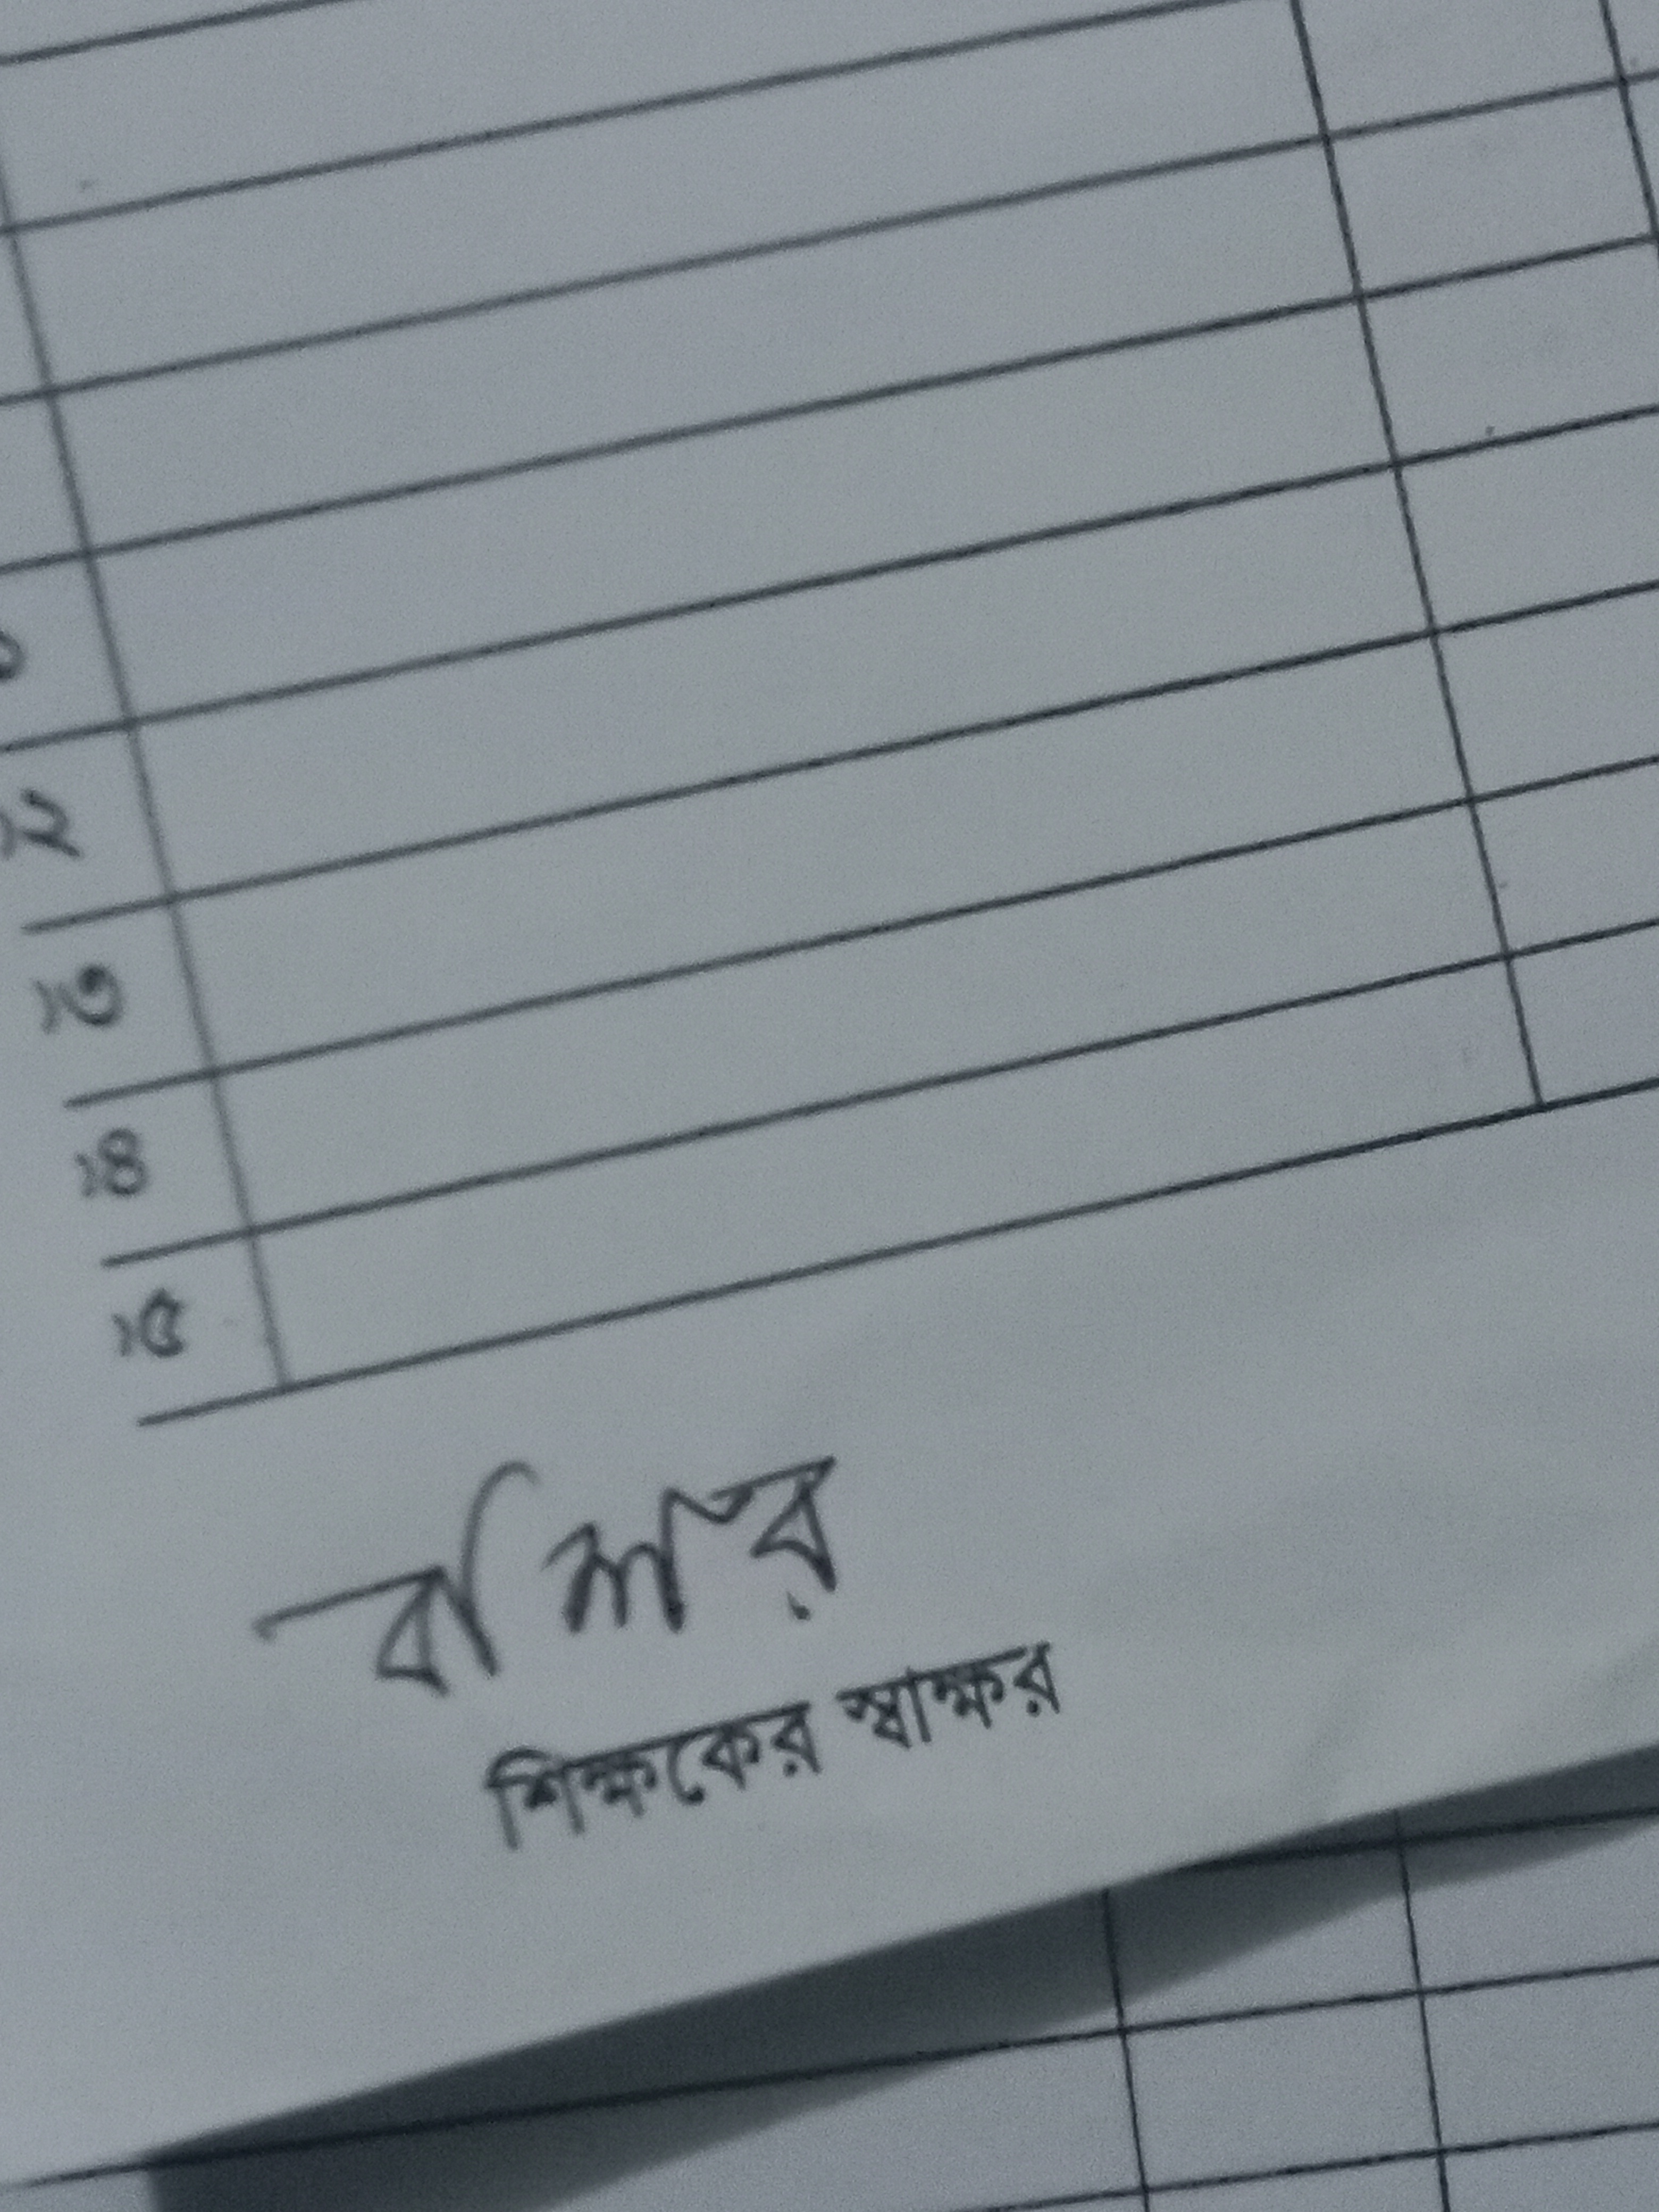 ১২
১৩
১৪
১৫
বশির
শিক্ষকের স্বাক্ষর